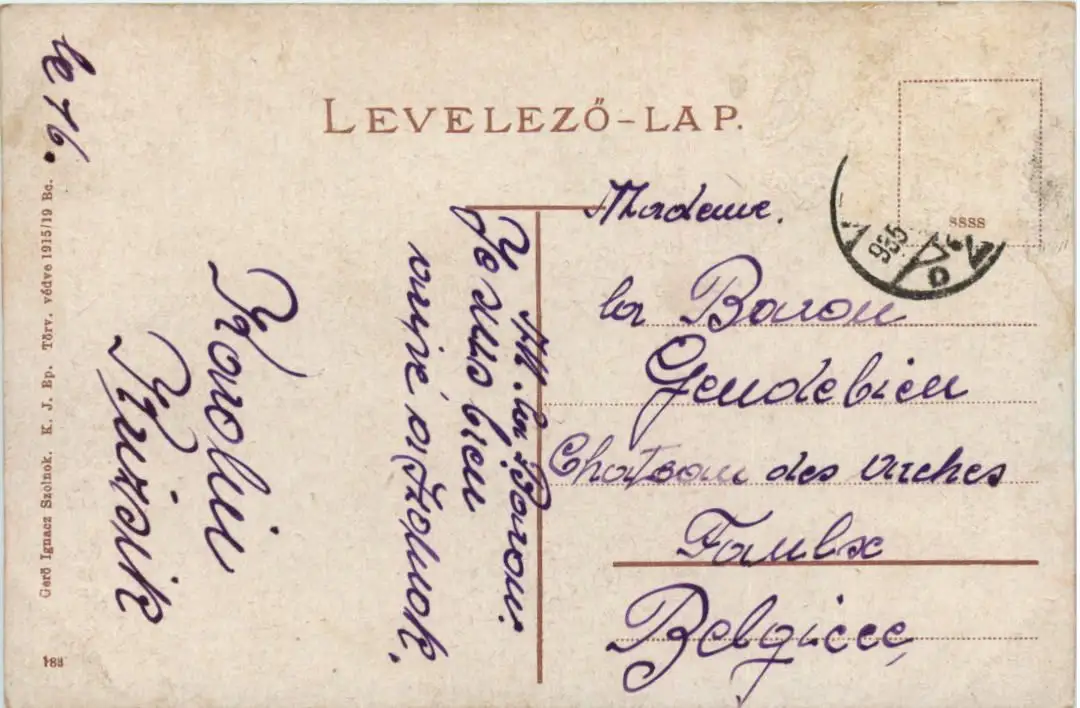 LEVELEZŐ-LAP.
le 16.
Gerő Ignacz Szolnok. K. J. Ep. Törv. védve 1915/19 Bc.
183
SSSS
935
D
Madame.
la Baron
Gendebien
Chateau des arches
Faulx
Belgique
M. la Baron.
Je suis bien
arrivé a Szolnok.
Karolin